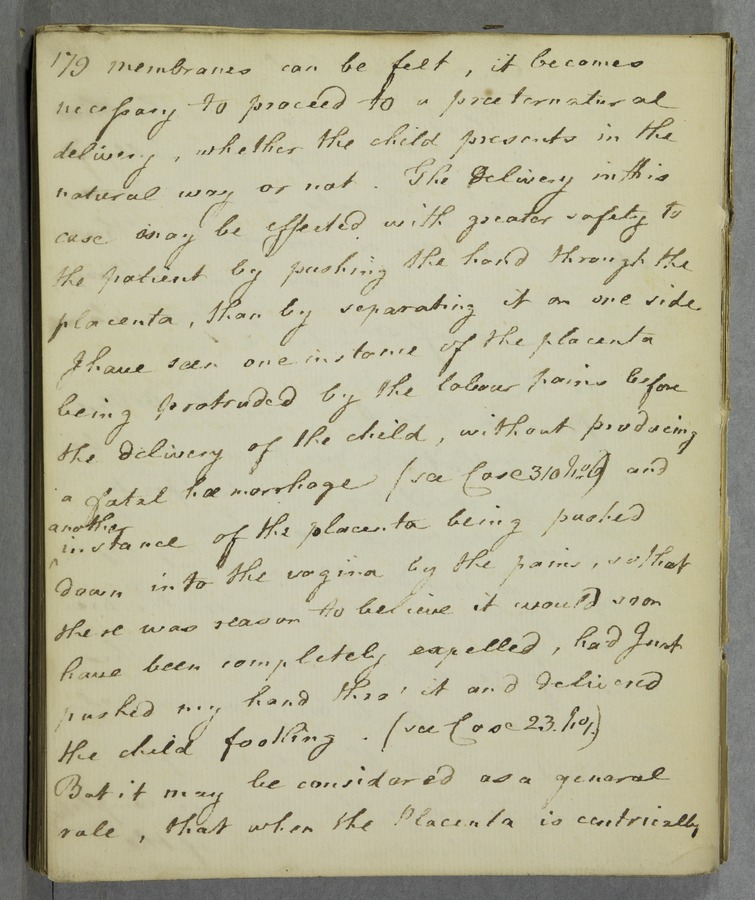 179 membranes can be felt, it becomes
necessary to proceed to a preternatural
delivery, whether the child presents in the
natural way or not. The Delivery in this
case may be effected with greater safety to
the patient by pushing the hand through the
placenta, than by separating it on one side
I have seen one instance of the placenta
being protruded by the labour pains before
the delivery of the child, without producing
a fatal hæmorrhage (see Case 310 and
another
instance of the placenta being pushed
down into the vagina by the pains, so that
there was reason to believe it would soon
have been completely expelled, had I not
pushed my hand thro' it and delivered
the child footling. (see Case 23.
But it may be considered as a general
rule, that when the Placenta is centrically